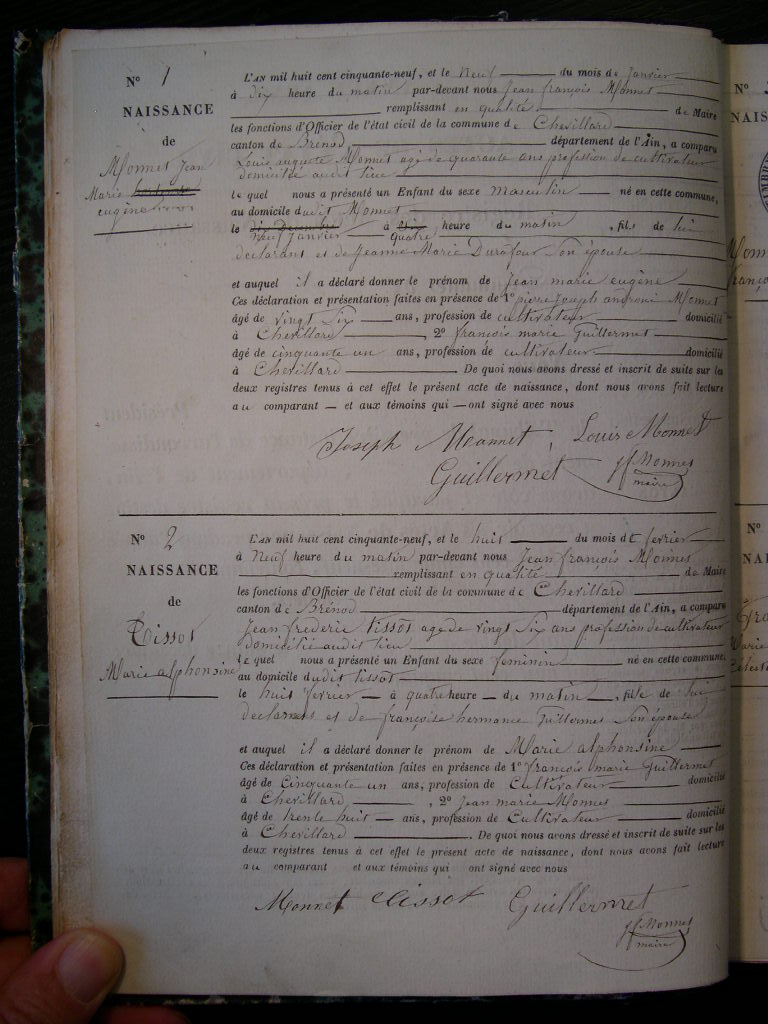 N° 1
NAISSANCE
de
Monnet Jean
Marie
eugène
L'AN mil huit cent cinquante-neuf, et le Neuf du mois de Janvier
à dix heure du matin par-devant nous Jean françois Monnet
remplissant en qualité de Maire
les fonctions d'Officier de l'état civil de la commune de Chevillard
canton de Brénod département de l'Ain, a comparu
Louis auguste Monnet agé de quarante ans profession de cultivateur
domicilié audit lieu
le quel nous a présenté un Enfant du sexe masculin né en cette commune,
au domicile dudit Monnet
le dix Decembre à heure du matin, fils de lui
neuf Janvier quatre
declarans et de Jeanne Marie Durafour son épouse
et auquel il a déclaré donner le prénom de Jean marie eugène
Ces déclaration et présentation faites en présence de 1° pierre Joseph Monnet
âgé de vingt six ans, profession de cultivateur domicilié
à Chevillard, 2° françois marie Guillermet
âgé de cinquante un ans, profession de cultivateur domicilié
à Chevillard De quoi nous avons dressé et inscrit de suite sur les
deux registres tenus à cet effet le présent acte de naissance, dont nous avons fait lecture
au comparant et aux témoins qui ont signé avec nous
Joseph Monnet, Louis Monnet
Guillermet jf Monnet
maire
N° 2
NAISSANCE
de
Tissot
Marie alphonsine
L'AN mil huit cent cinquante-neuf, et le huit du mois de fevrier
à Neuf heure du matin par-devant nous Jean françois Monnet
remplissant en qualité de Maire
les fonctions d'Officier de l'état civil de la commune de Chevillard
canton de Brénod département de l'Ain, a comparu
Jean frederic tissot age de vingt six ans profession de cultivateur
domicilié audit lieu
le quel nous a présenté un Enfant du sexe feminin né en cette commune,
au domicile dudit tissot
le huit fevrier à quatre heure du matin, fille de lui
declarans et de françoise hermance Guillermet son épouse
et auquel il a déclaré donner le prénom de Marie alphonsine
Ces déclaration et présentation faites en présence de 1° françois marie Guillermet
âgé de Cinquante un ans, profession de Cultivateur domicilié
à Chevillard, 2° Jean marie Monnet
âgé de trente huit ans, profession de Cultivateur domicilié
à Chevillard. De quoi nous avons dressé et inscrit de suite sur les
deux registres tenus à cet effet le présent acte de naissance, dont nous avons fait lecture
au comparant et aux témoins qui ont signé avec nous
Monnet tissot Guillermet
jf Monnet
maire